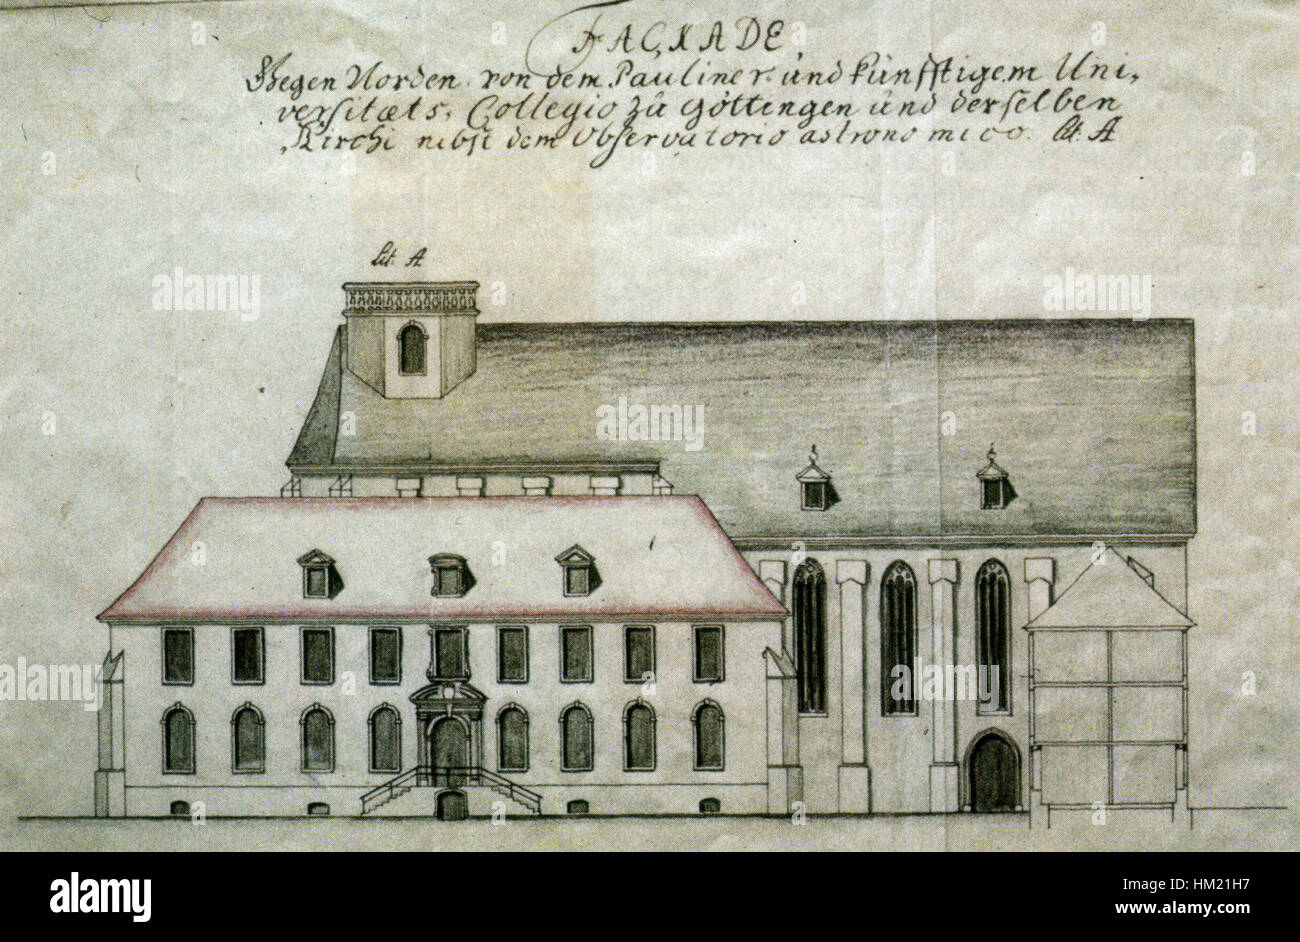 FAÇXADE
Gegen Norden von dem Pauliner und künfftigem Uni,
versitæts, Collegio zu Göttingen und derselben
Kirchi nebst dem Observatorio astronomico. lit. A
Lit. A
alamy stock photo
alamy
Image ID: HM21H7
www.alamy.com